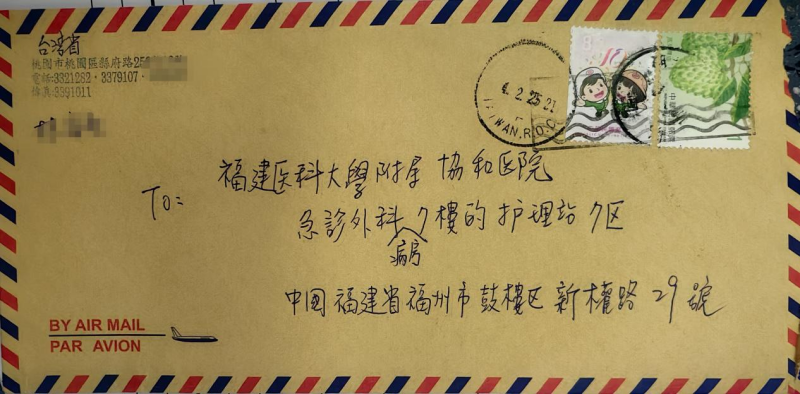 台湾省
桃園市桃園區縣府路25
電話:3321282・3379107・
傳真:3391011
4.2.25 21
WAN.R.O.C
To:
福建医科大學附屋 協和医院
急診外科7樓的护理站7区
病房
中國福建省福州市鼓樓区新權路29號
BY AIR MAIL
PAR AVION